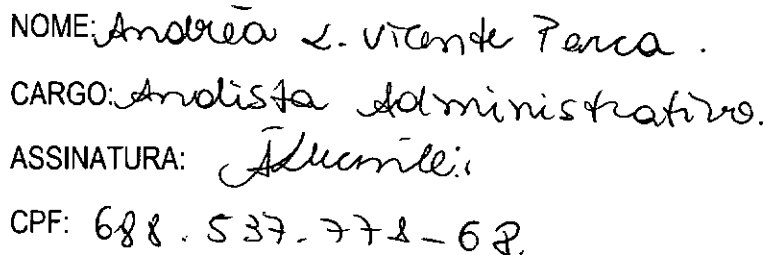 NOME: Andréa L. Vicente
CARGO: Analista Administrativo.
ASSINATURA:
CPF: 688.537.778-68.